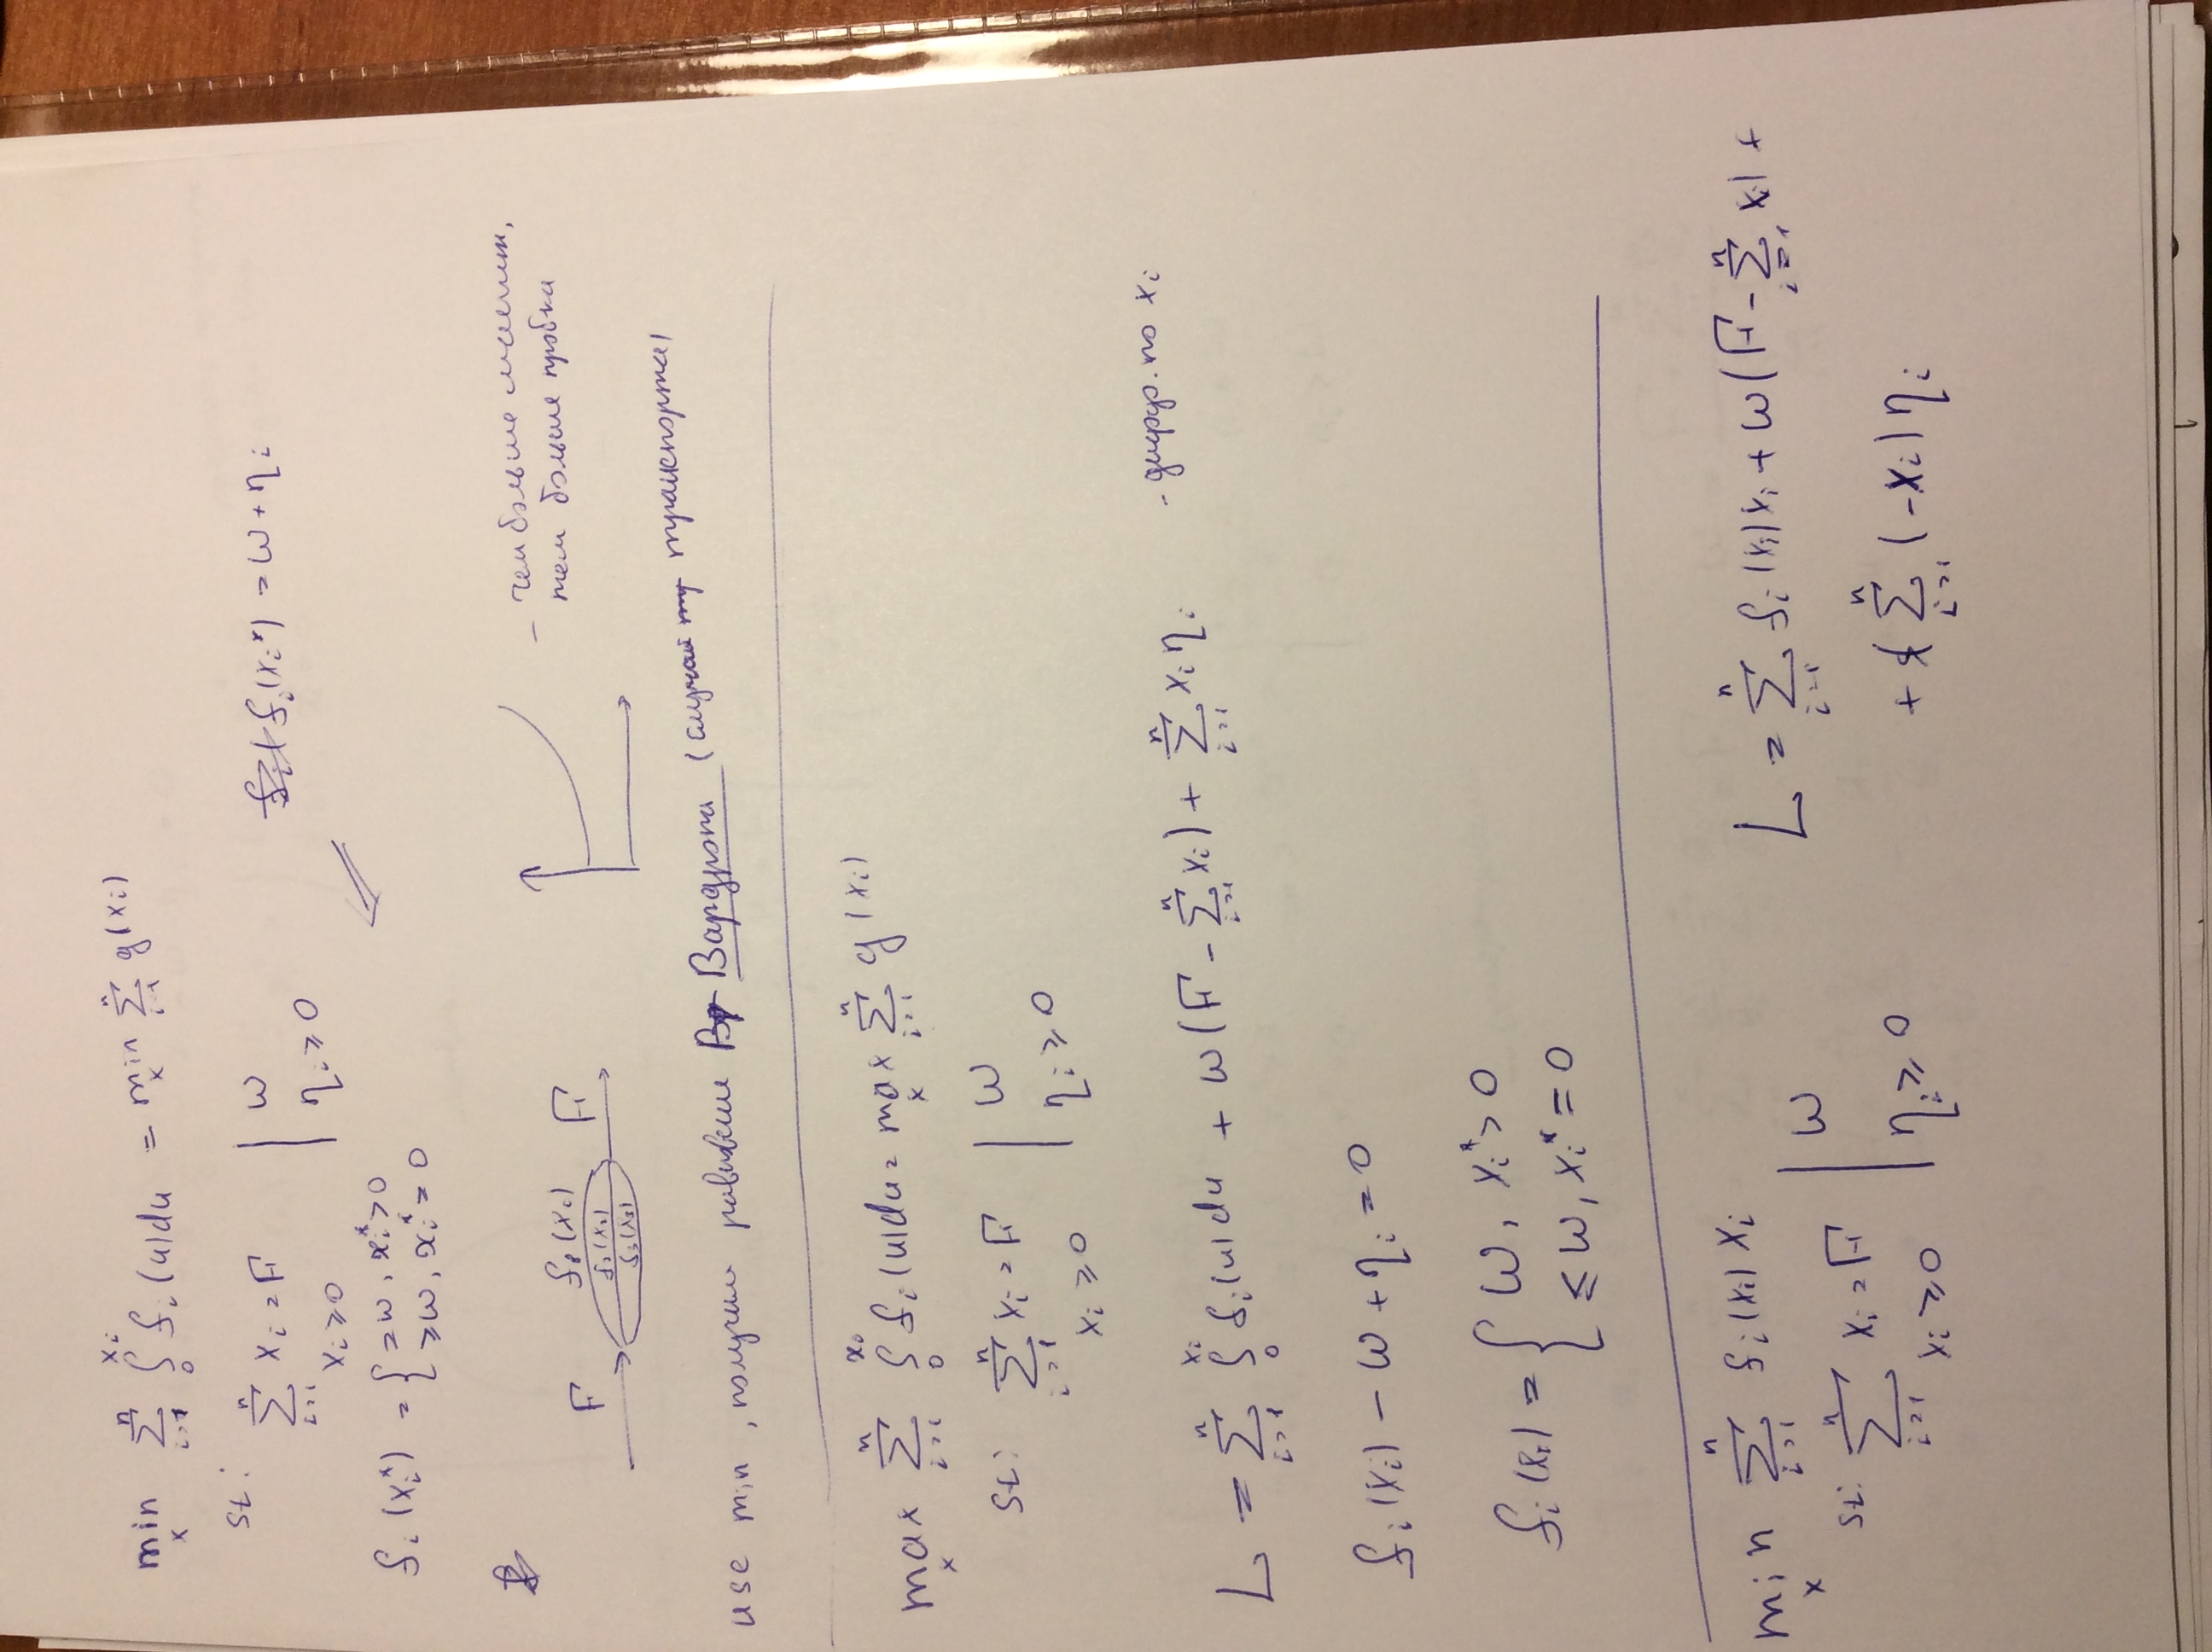 min_x ∑_{i=1}^{n} ∫_0^{x_i} f_i(u)du = min_x ∑_{i=1}^{n} g(x_i)
st: ∑_{i=1}^{n} x_i = F | ω
x_i ≥ 0 | η_i ≥ 0
f_i(x_i*) = ω + η_i
f_i(x_i*) = { = ω, x_i* > 0
≥ ω, x_i* = 0
F f_1(x_1) F
f_2(x_2)
f_3(x_3)
- чем больше машин,
тем больше пробка
use min, получим равновесие Вардропа (случай транспорта)
max_x ∑_{i=1}^{n} ∫_0^{x_i} f_i(u)du = max_x ∑_{i=1}^{n} g(x_i)
st: ∑_{i=1}^{n} x_i = F | ω
x_i ≥ 0 | η_i ≥ 0
L = ∑_{i=1}^{n} ∫_0^{x_i} f_i(u)du + ω(F - ∑_{i=1}^{n} x_i) + ∑_{i=1}^{n} x_i η_i - дифф. по x_i
f_i(x_i) - ω + η_i = 0
f_i(x_i) = { ω, x_i* > 0
≤ ω, x_i* = 0
min_x ∑_{i=1}^{n} f_i(x_i) x_i
st: ∑_{i=1}^{n} x_i = F | ω
x_i ≥ 0 | η_i ≥ 0
L = ∑_{i=1}^{n} f_i(x_i) x_i + ω(F - ∑_{i=1}^{n} x_i) +
+ ∑_{i=1}^{n} (-x_i) η_i